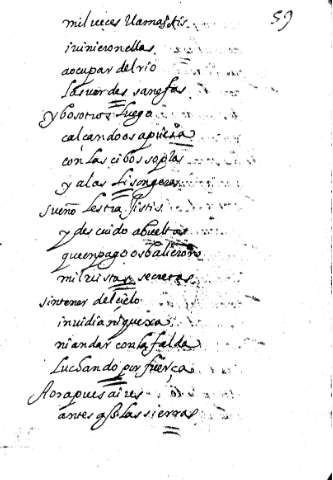 59
mil veces llamastis
i vinieron ellas
a ocupar del rio
las verdes sanefas
y bosotros luego
calçandoos apriesa
con las
y alas lisongeras
sueño les traxistis
y descuido abueltas
que en pago os balieron
mil vistas secretas
sin tener del cielo
invidia ni quexa
ni andar con la falda
luchando por fuerça
Aora pues aires
antes q las sierras